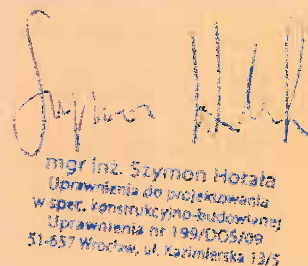 Szymon
mgr inż. Szymon Horała
Uprawnienia do projektowania
w spec. konstrukcyjno-budowlanej
Uprawnienia nr 199/DOŚ/09
51-657 Wrocław, ul. Kazimierska 13/5